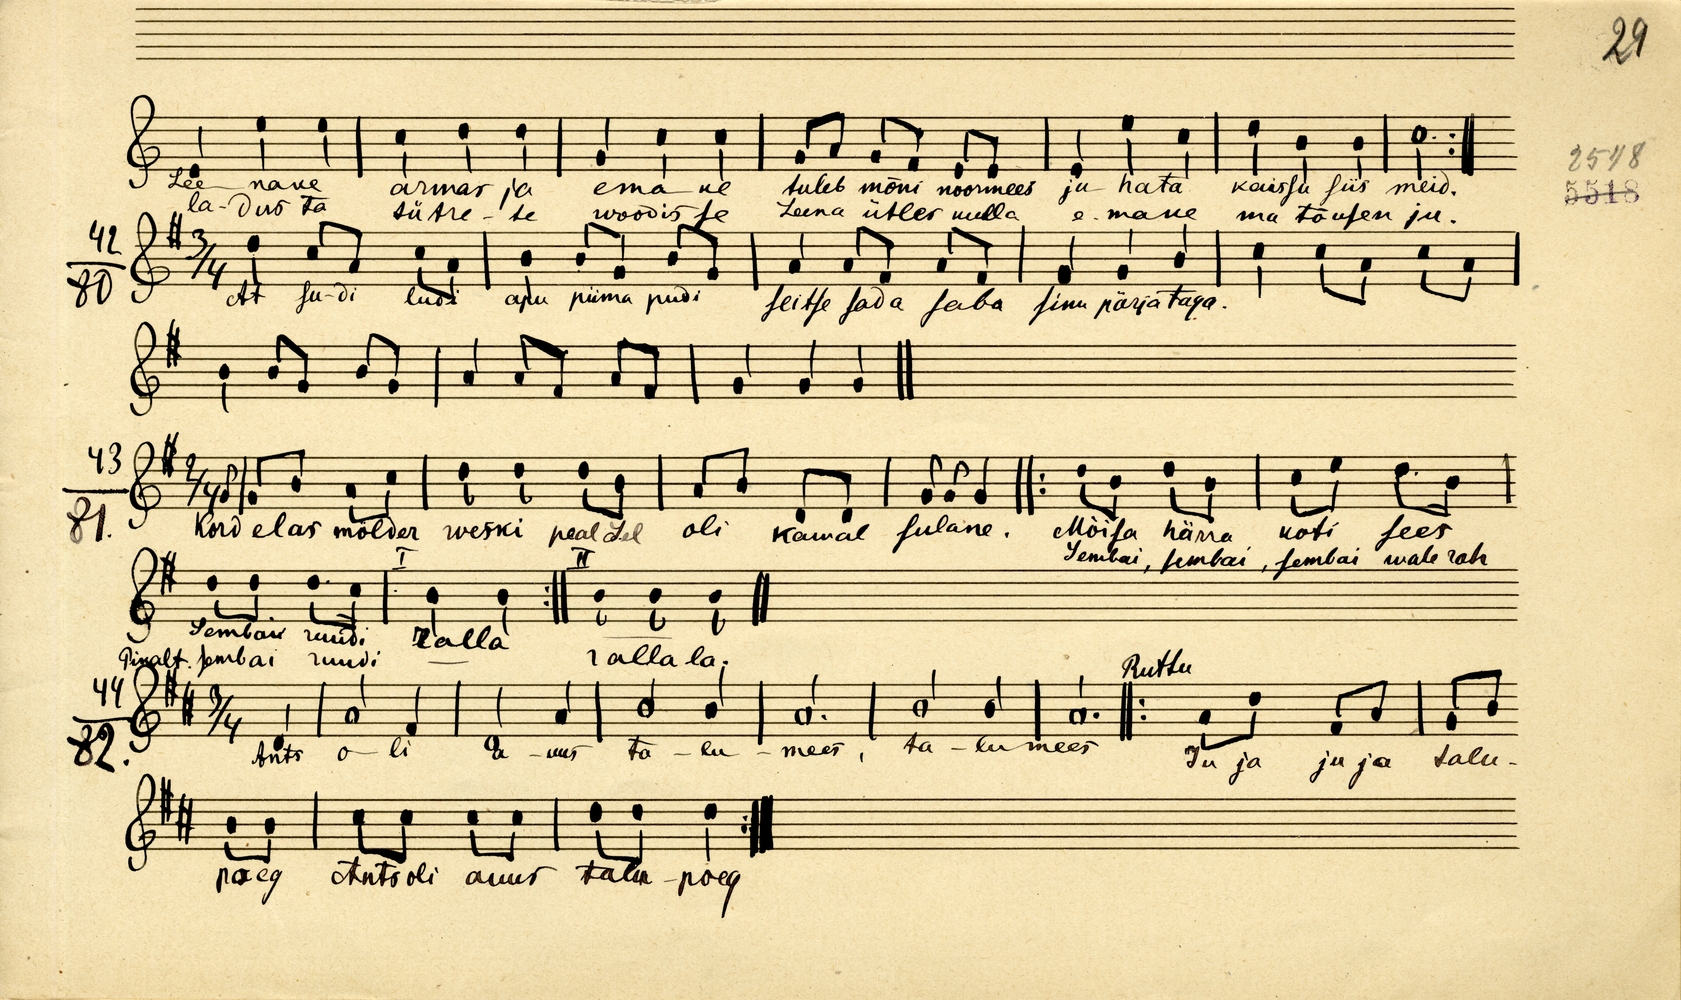 29
2578
5518
Lee - nane armas ja ema ne tuleb mõni noormees ju - hata kaissu siis meid.
la - dus ta tütre - te woodis se Leena ütles nulla e - mane ma tõusen ju.
42
80
3/4
At su - di ludi apu piima pudi
seitse sada saba sinu pärja taga.
43
81.
2/4
Kord elas mölder weski peal Sel oli kamal sulane. Mõisa härra koti sees
Sembai, sembai, sembai wale rah
I II
Sembai ruudi ralla
sembai ruudi ralla la.
44
82.
3/4
Ruttu
Ants o - li ta - lu - mees, ta - lu mees Ju ja ju ja talu -
poeg Ants oli auus talu - poeg